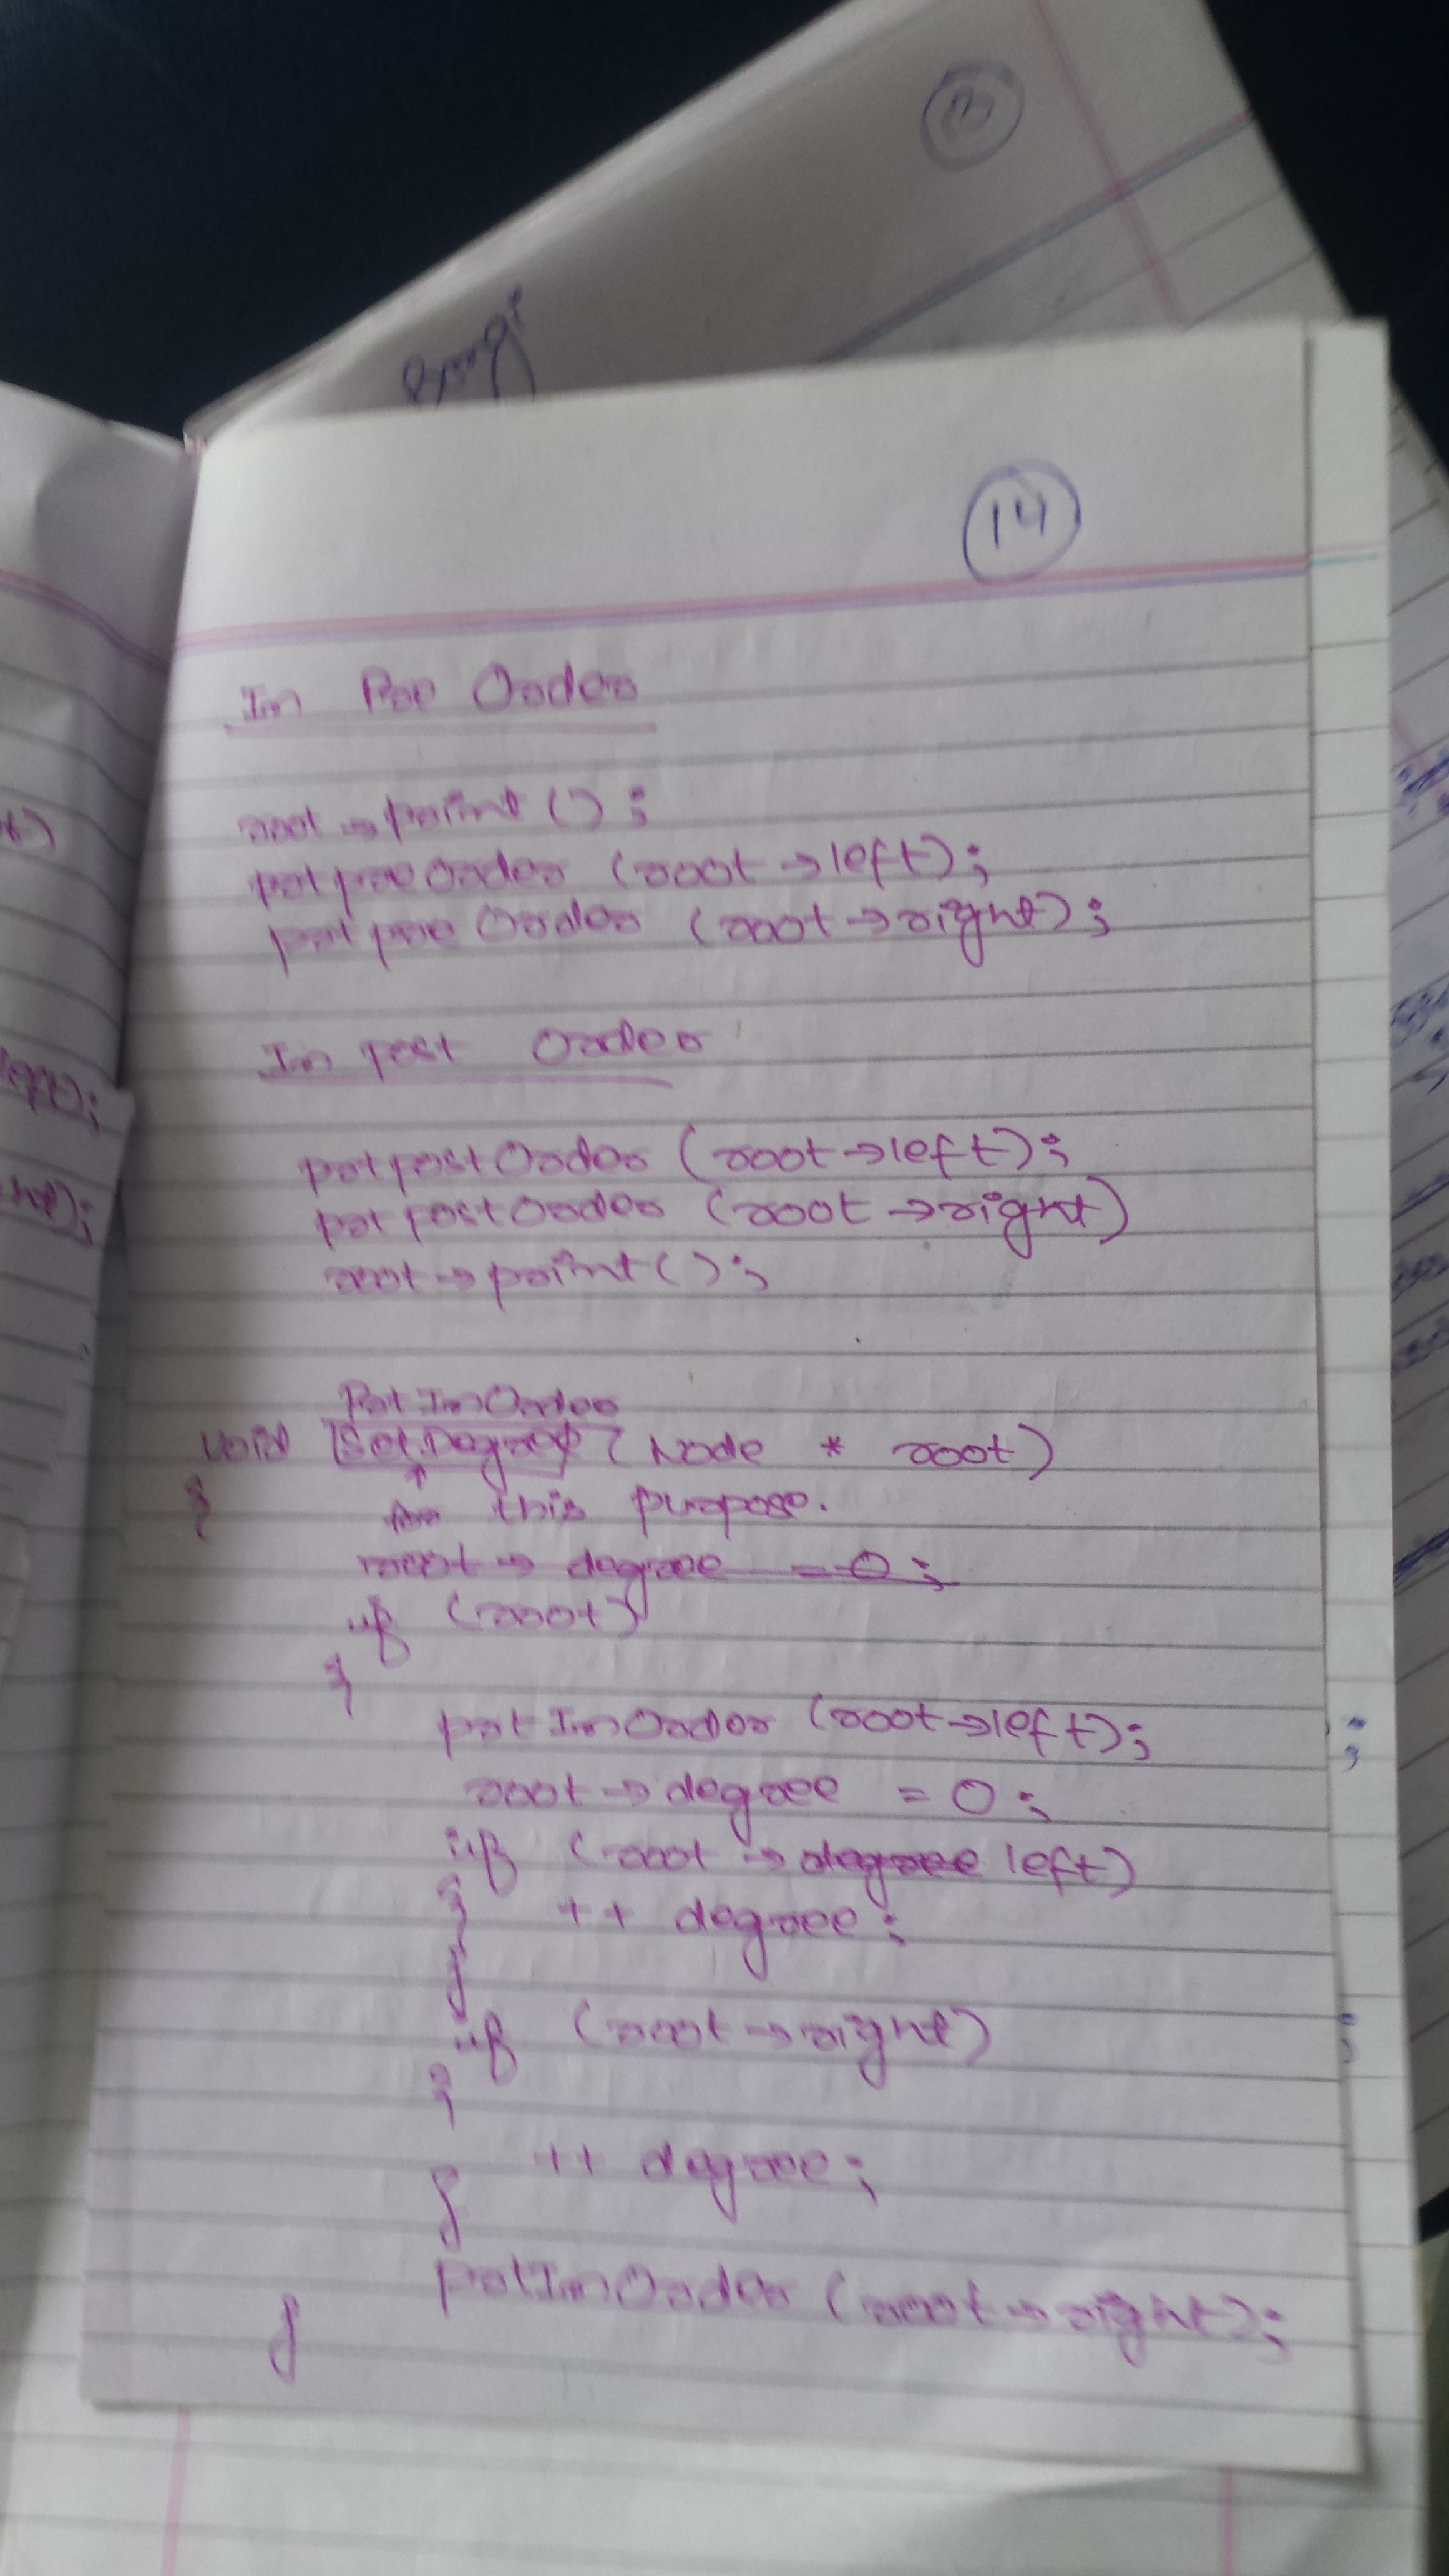 14
In Pre Order
root → print () ;
prt pre Order (root → left) ;
prt pre Order (root → right) ;
In post Order
prt post Order (root → left) ;
prt post Order (root → right)
root → print () ;
Prt In Order
void Set Degree (Node * root)
{ for this purpose.
root → degree = 0 ;
if (root)
{
prt In Order (root → left) ;
root → degree = 0 ;
if (root → degree left)
{ ++ degree ;
}
if (root → right)
{
++ degree ;
}
prt In Order (root → right) ;
}